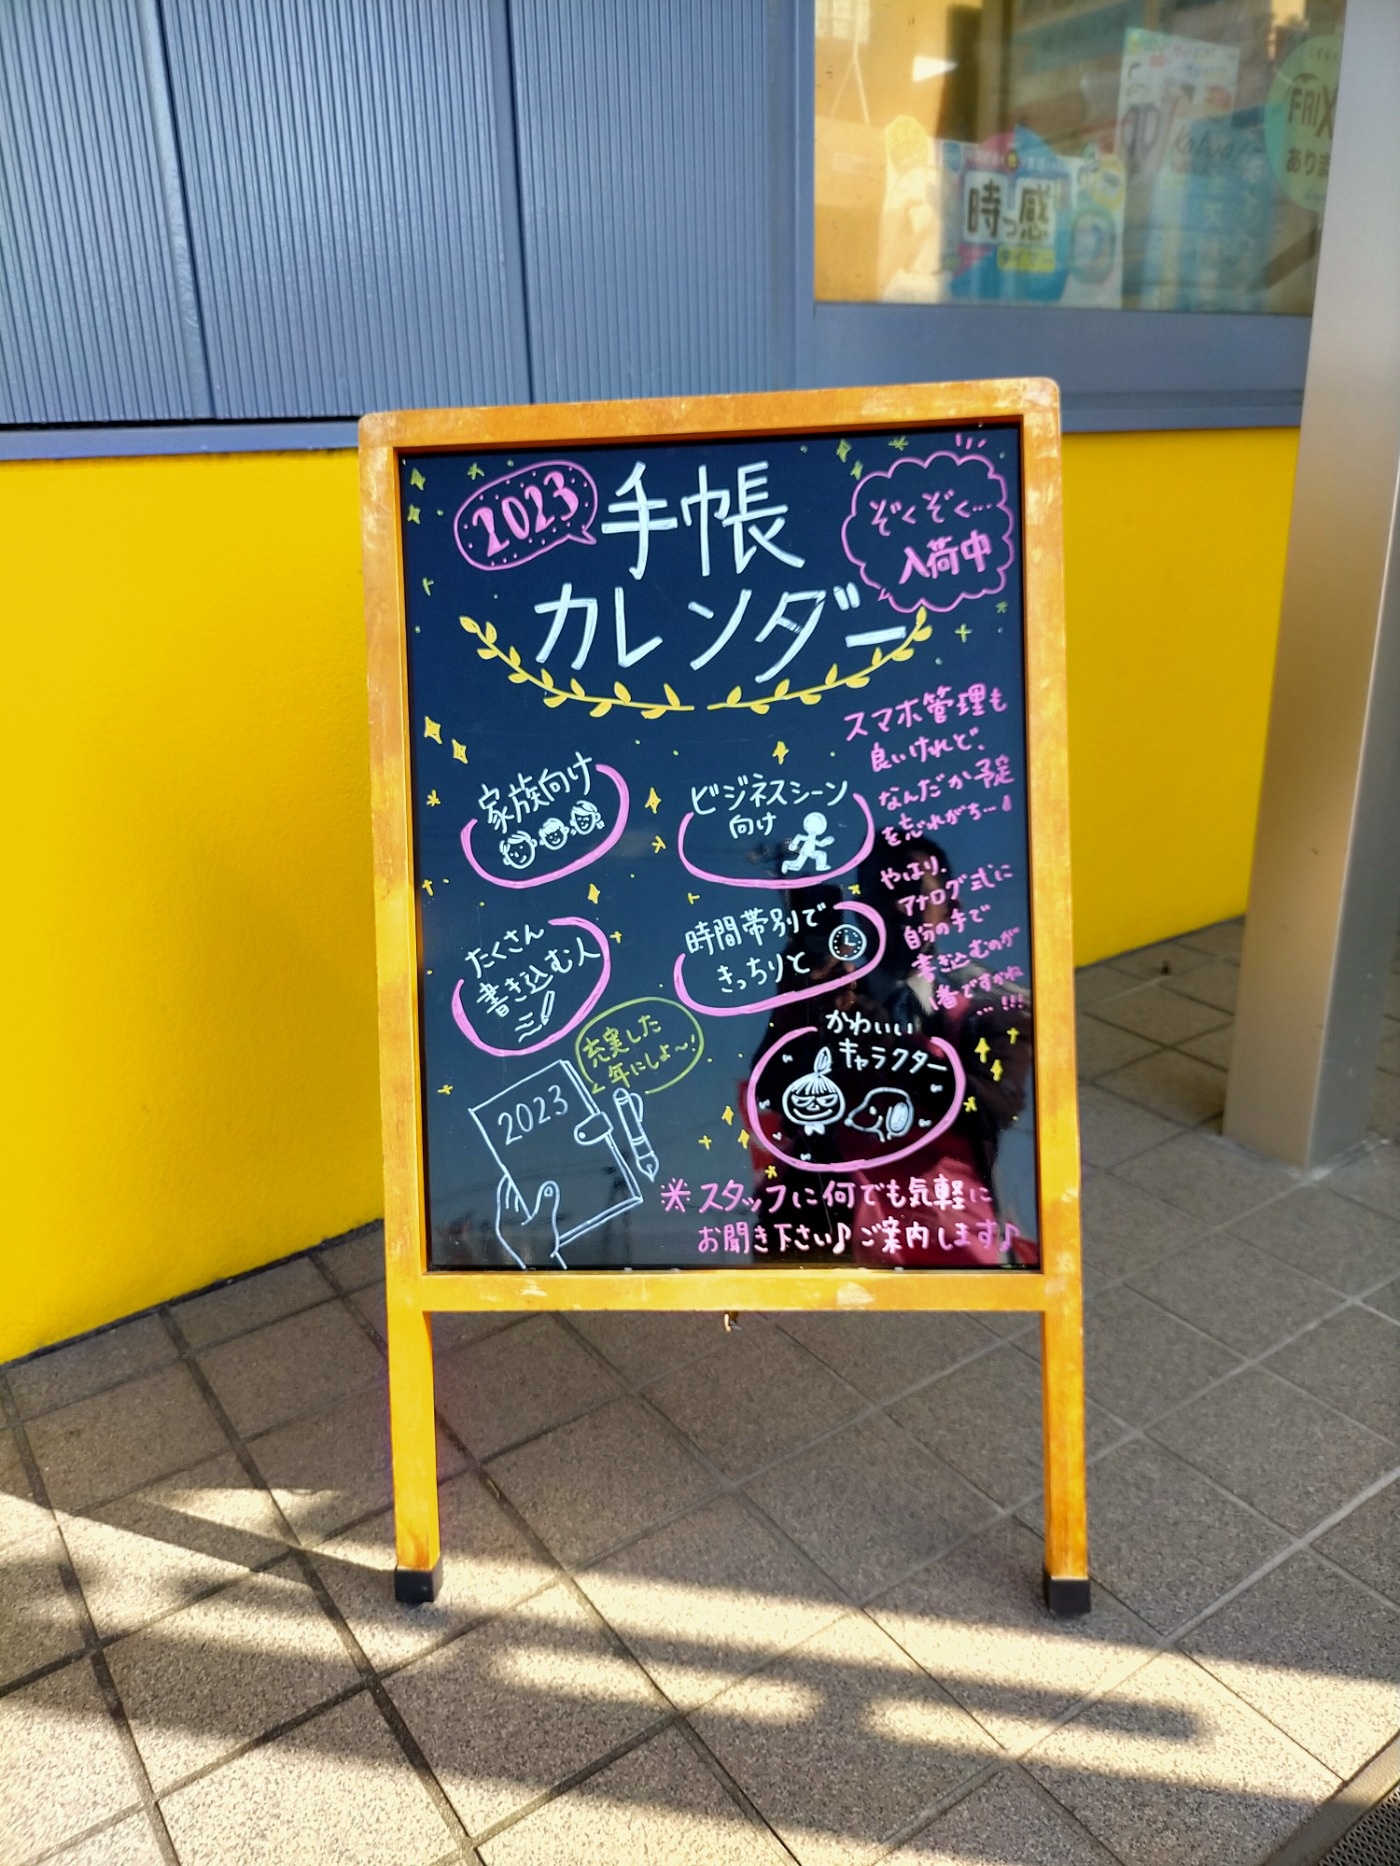 時っ感
タイマー
FAIX
2023
手帳
カレンダー
ぞくぞく…
入荷中
スマホ管理も
良いけれど、
なんだか予定
を忘れがち…
やはり、
アナログ式に
自分の手で
書き込むのが
1番ですかね
…!!!
家族向け
ビジネスシーン
向け
たくさん
書き込む人
時間帯別で
きっちりと
充実した
年にしよ〜!
2023
かわいい
キャラクター
※スタッフに何でも気軽に
お聞き下さい♪ご案内します♪